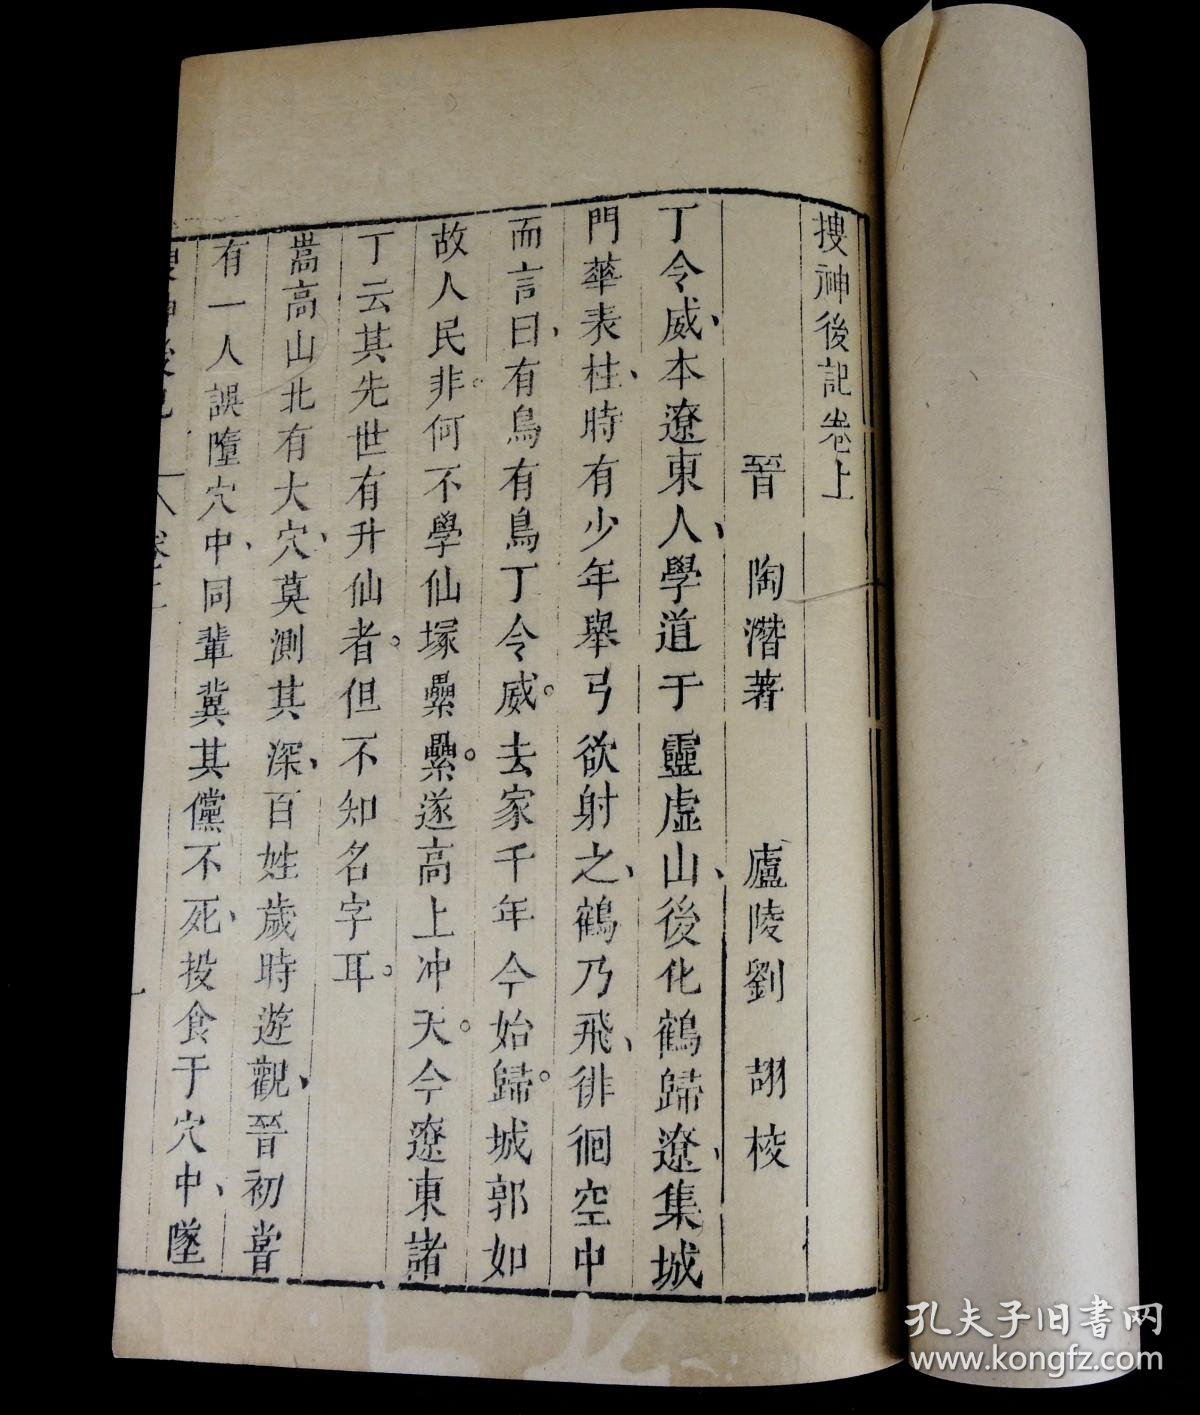 搜神後記卷上
晉 陶潛著 廬陵劉 㓤校
丁令威、本遼東人、學道于靈虛山、後化鶴歸遼、集城
門華表柱、時有少年舉弓欲射之、鶴乃飛、徘徊空中
而言曰、有鳥有鳥丁令威。去家千年今始歸。城郭如
故人民非。何不學仙塚纍纍。遂高上冲天。今遼東諸
丁云其先世有升仙者。但不知名字耳。
嵩高山北有大穴、莫測其深、百姓歲時遊觀、晉初嘗
有一人誤墮穴中、同輩冀其儻不死、投食于穴中、墜
孔夫子旧书网
www.kongfz.com